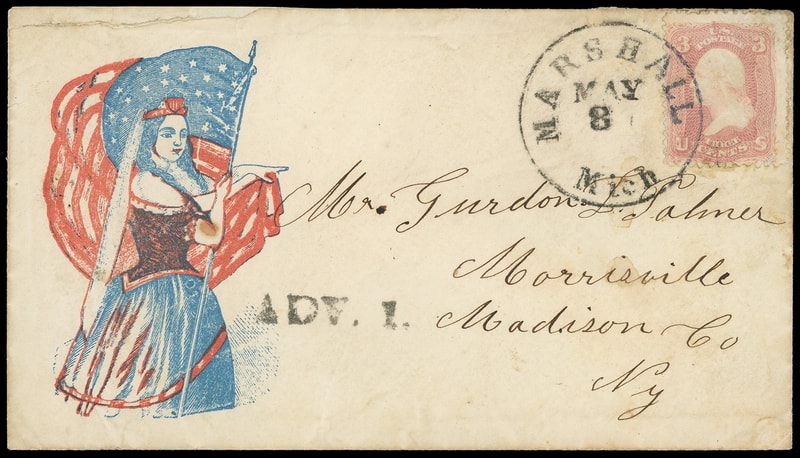 MARSHALL
MAY
8
Mich
3 U.S. POSTAGE 3
U THREE CENTS S
Mr. Gurdon L. Palmer
Morrisville
ADV. 1.
Madison Co
Ny